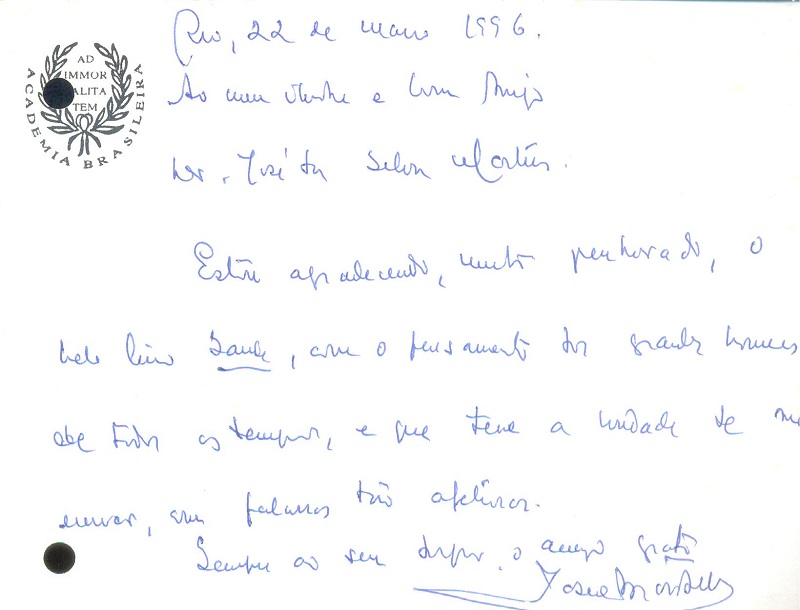 ACADEMIA BRASILEIRA
AD
IMMOR
ALITA
TEM
Rio, 22 de maio 1996.
Ao meu ilustre e bom Amigo
Dr. José da Silva Martins.
Estou agradecendo, muito penhorado, o
belo livro Saúde, com o pensamento dos grandes homens
de todos os tempos, e que teve a bondade de me
enviar, com palavras tão afetivas.
Sempre ao seu dispor, o amigo grato
Josué Montello